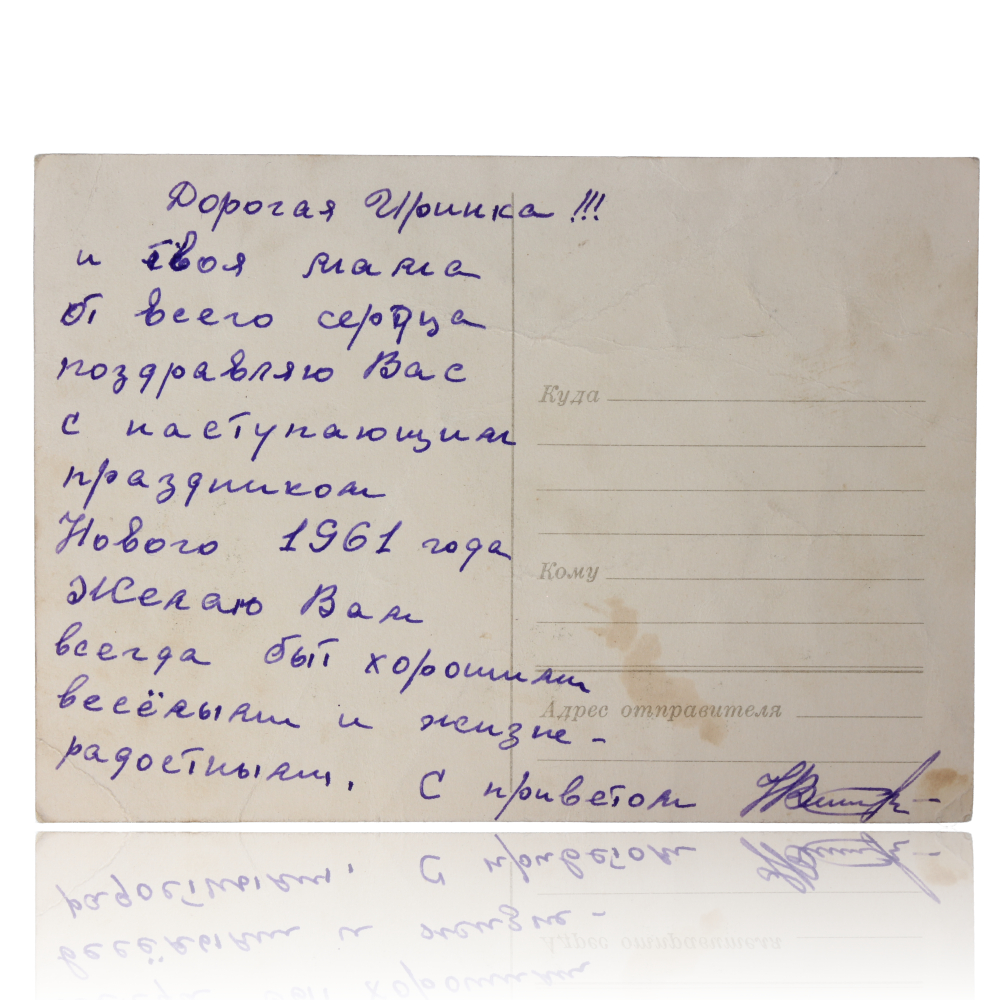 Дорогая Иринка !!!
и твоя мама
от всего сердца
поздравляю Вас
с наступающим
праздником
Нового 1961 года
Желаю Вам
всегда быт хорошим
весёлыям и жизне-
радостныям. С приветом
Куда
Кому
Адрес отправителя